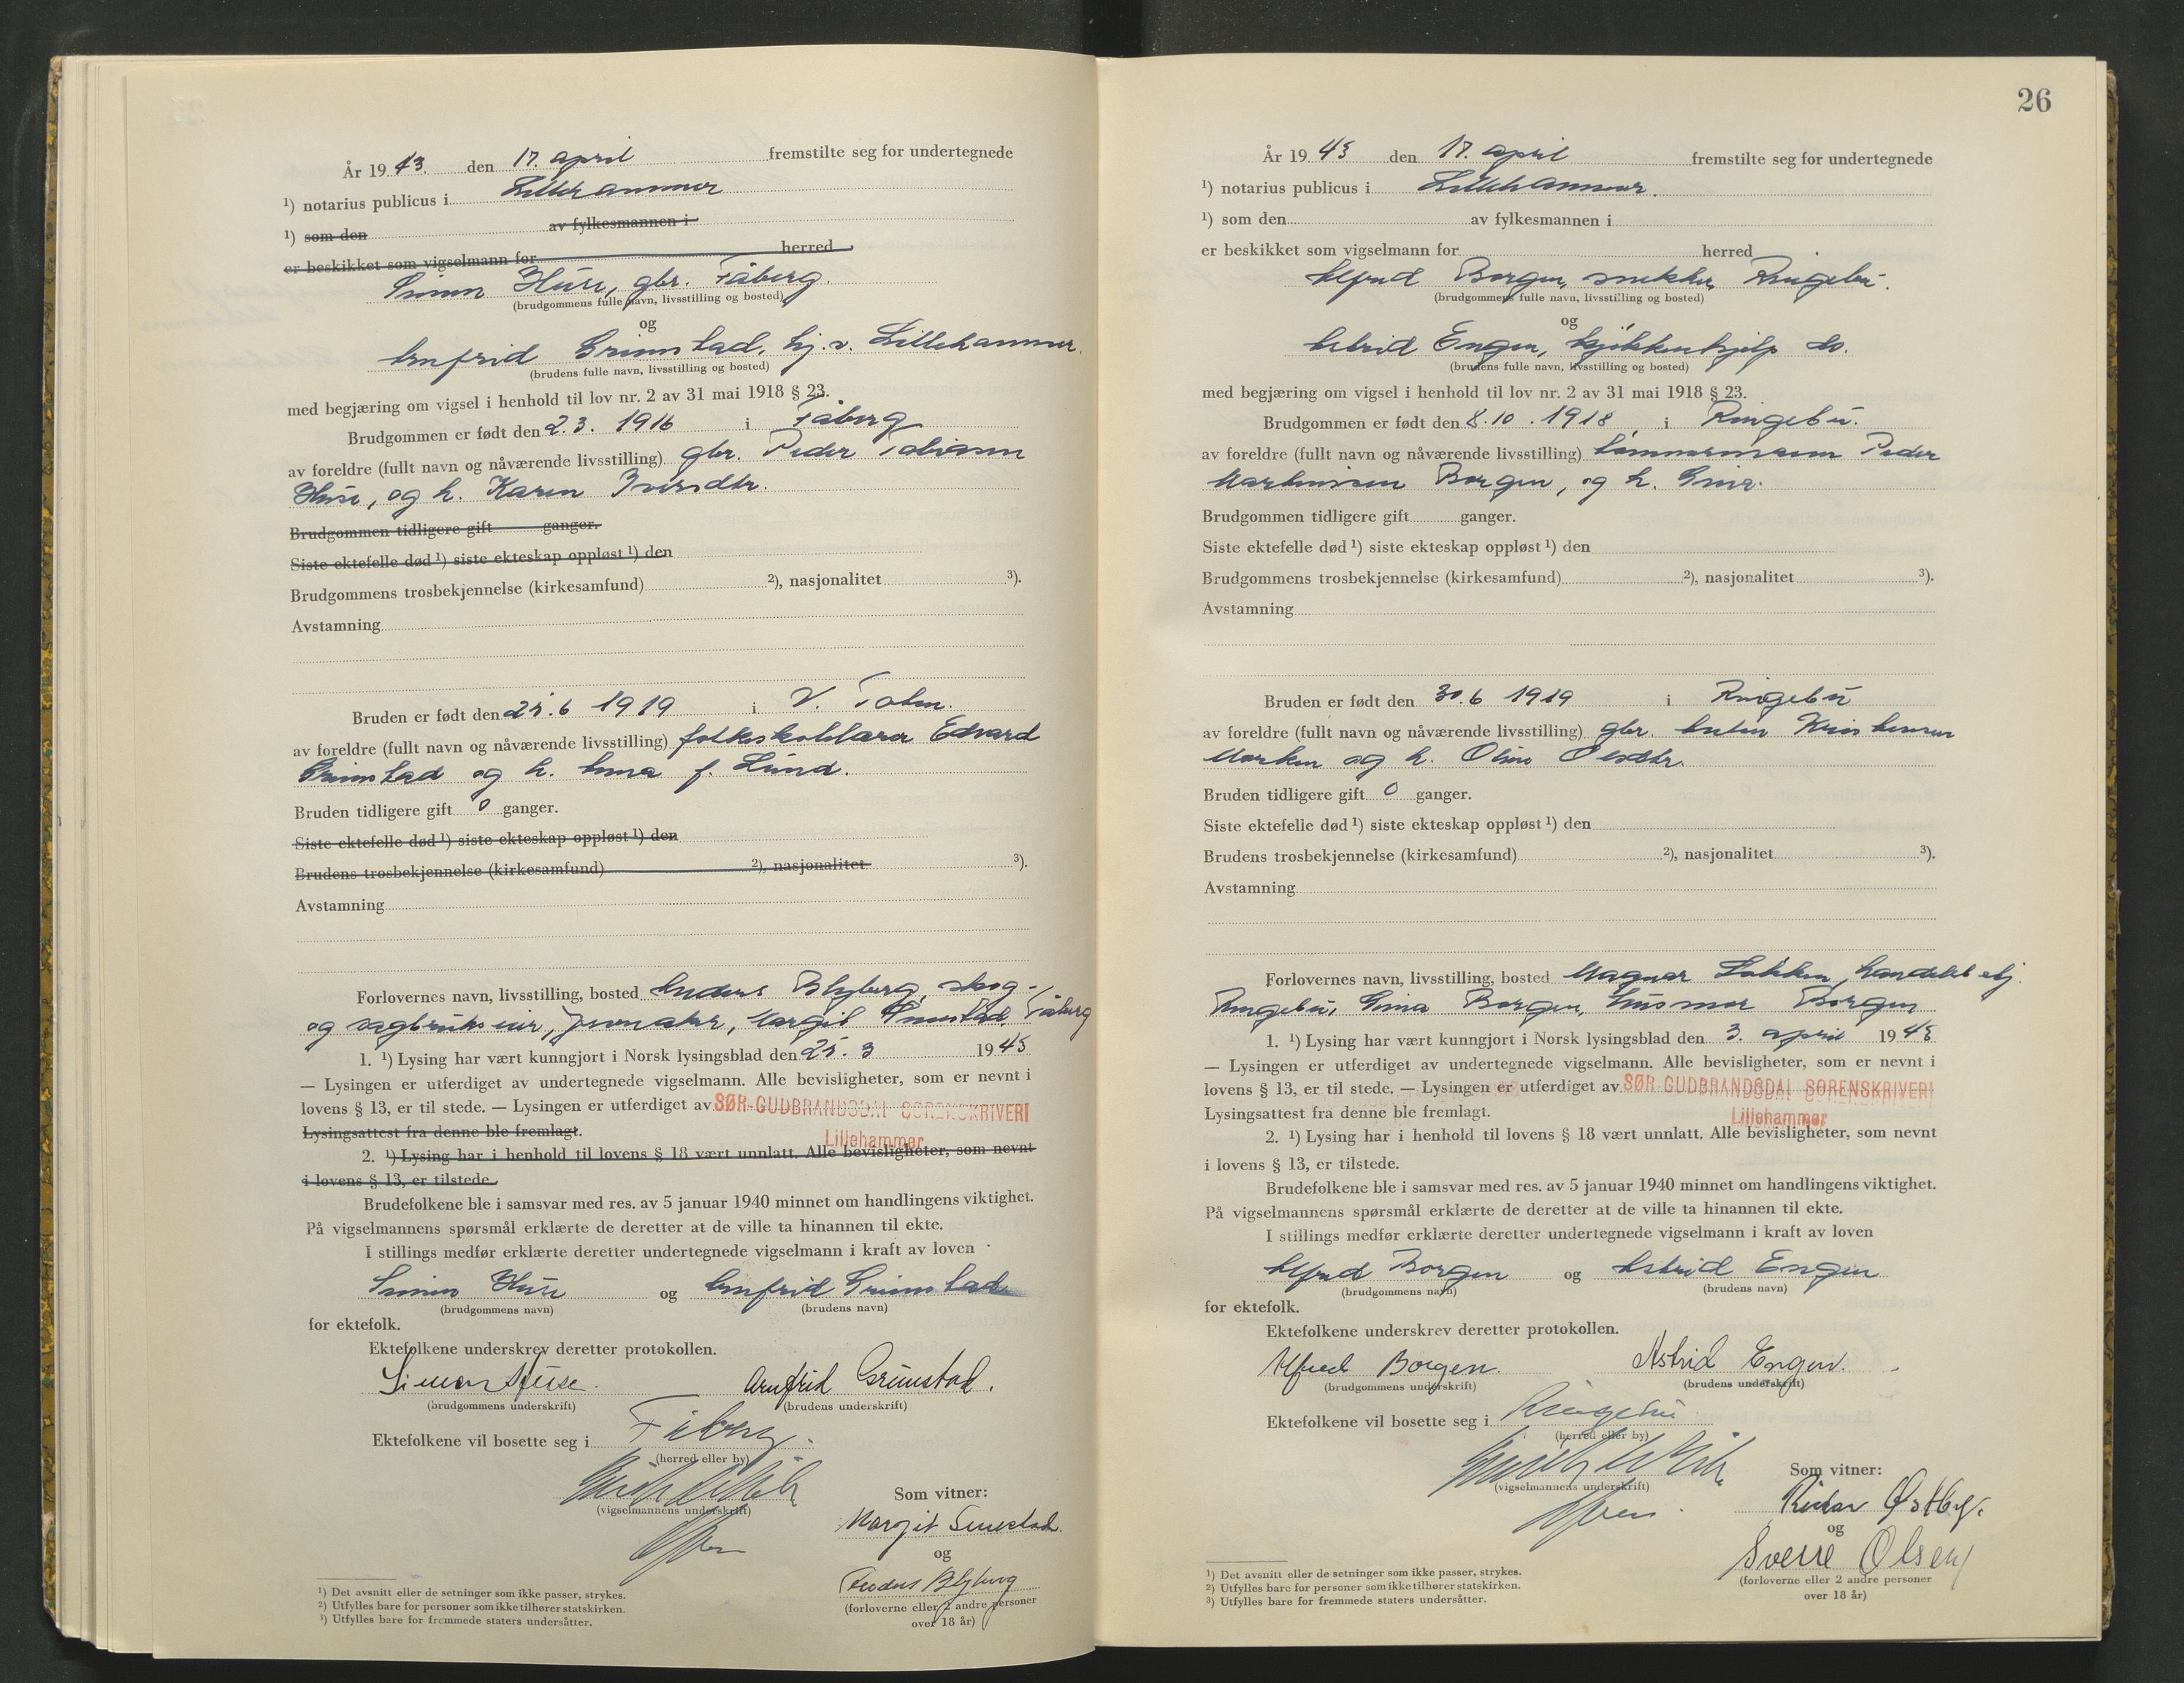 År 19 43. den 17. april fremstilte seg for undertegnede
¹) notarius publicus i Lillehammer
¹) som den av fylkesmannen i
er beskikket som vigselmann for herred
Simen Huse, gbr. Fåberg.
(brudgommens fulle navn, livsstilling og bosted)
og
Arnfrid Grimstad, hj.v. Lillehammer.
(brudens fulle navn, livsstilling og bosted)
med begjæring om vigsel i henhold til lov nr. 2 av 31 mai 1918 § 23.
Brudgommen er født den 2.3. 1916 i Fåberg
av foreldre (fullt navn og nåværende livsstilling) gbr. Peder Tobiassen
Huse, og h. Karen Iversdtr.
Brudgommen tidligere gift ganger.
Siste ektefelle død ¹) siste ekteskap oppløst ¹) den
Brudgommens trosbekjennelse (kirkesamfund) ²), nasjonalitet ³).
Avstamning
Bruden er født den 25.6 1919 i V. Toten.
av foreldre (fullt navn og nåværende livsstilling) folkeskolelærer Edvard
Grimstad og h. Anna f. Lund.
Bruden tidligere gift 0 ganger.
Siste ektefelle død ¹) siste ekteskap oppløst ¹) den
Brudens trosbekjennelse (kirkesamfund) ²), nasjonalitet ³).
Avstamning
Forlovernes navn, livsstilling, bosted Anders Blyberg, skog-
og sagbrukseier, Margit Fåberg
1. ¹) Lysing har vært kunngjort i Norsk lysingsblad den 25. 3 19 43
— Lysingen er utferdiget av undertegnede vigselmann. Alle bevisligheter, som er nevnt i
lovens § 13, er til stede. — Lysingen er utferdiget av SØR-GUDBRANDSDAL SORENSKRIVERI
Lysingsattest fra denne ble fremlagt. Lillehammer
2. ¹) Lysing har i henhold til lovens § 18 vært unnlatt. Alle bevisligheter, som nevnt
i lovens § 13, er tilstede.
Brudefolkene ble i samsvar med res. av 5 januar 1940 minnet om handlingens viktighet.
På vigselmannens spørsmål erklærte de deretter at de ville ta hinannen til ekte.
I stillings medfør erklærte deretter undertegnede vigselmann i kraft av loven
Simen Huse og Arnfrid Grimstad
(brudgommens navn) (brudens navn)
for ektefolk.
Ektefolkene underskrev deretter protokollen.
Simen Huse. Arnfrid Grimstad.
(brudgommens underskrift) (brudens underskrift)
Ektefolkene vil bosette seg i Fåberg.
(herred eller by)
(vigselmannens underskrift)
Som vitner:
Margit
og
Anders Blyberg
(forloverne eller 2 andre personer
over 18 år)
¹) Det avsnitt eller de setninger som ikke passer, strykes.
²) Utfylles bare for personer som ikke tilhører statskirken.
³) Utfylles bare for fremmede staters undersåtter.
26
År 19 43 den 17. april fremstilte seg for undertegnede
¹) notarius publicus i Lillehammer.
¹) som den av fylkesmannen i
er beskikket som vigselmann for herred
Alfred Borgen, snekker, Ringebu.
(brudgommens fulle navn, livsstilling og bosted)
og
Astrid Engen, kjökkenhjelp do.
(brudens fulle navn, livsstilling og bosted)
med begjæring om vigsel i henhold til lov nr. 2 av 31 mai 1918 § 23.
Brudgommen er født den 8.10.1918 i Ringebu.
av foreldre (fullt navn og nåværende livsstilling) tömmermann Peder
Martinsen Borgen, og h. Gina.
Brudgommen tidligere gift ganger.
Siste ektefelle død ¹) siste ekteskap oppløst ¹) den
Brudgommens trosbekjennelse (kirkesamfund) ²), nasjonalitet ³).
Avstamning
Bruden er født den 30.6 1919 i Ringebu
av foreldre (fullt navn og nåværende livsstilling) gbr. Anton Kristensen
og h. Oline Olsdtr.
Bruden tidligere gift 0 ganger.
Siste ektefelle død ¹) siste ekteskap oppløst ¹) den
Brudens trosbekjennelse (kirkesamfund) ²), nasjonalitet ³).
Avstamning
Forlovernes navn, livsstilling, bosted Magnar Løkken,
Ringebu, Gina Borgen, husmor Borgen
1. ¹) Lysing har vært kunngjort i Norsk lysingsblad den 3. april 19 43
— Lysingen er utferdiget av undertegnede vigselmann. Alle bevisligheter, som er nevnt i
lovens § 13, er til stede. — Lysingen er utferdiget av SØR-GUDBRANDSDAL SORENSKRIVERI
Lysingsattest fra denne ble fremlagt. Lillehammer
2. ¹) Lysing har i henhold til lovens § 18 vært unnlatt. Alle bevisligheter, som nevnt
i lovens § 13, er tilstede.
Brudefolkene ble i samsvar med res. av 5 januar 1940 minnet om handlingens viktighet.
På vigselmannens spørsmål erklærte de deretter at de ville ta hinannen til ekte.
I stillings medfør erklærte deretter undertegnede vigselmann i kraft av loven
Alfred Borgen og Astrid Engen
(brudgommens navn) (brudens navn)
for ektefolk.
Ektefolkene underskrev deretter protokollen.
Alfred Borgen. Astrid Engen.
(brudgommens underskrift) (brudens underskrift)
Ektefolkene vil bosette seg i Ringebu
(herred eller by)
(vigselmannens underskrift)
Som vitner:
Østby.
og
Sverre Olsen
(forloverne eller 2 andre personer
over 18 år)
¹) Det avsnitt eller de setninger som ikke passer, strykes.
²) Utfylles bare for personer som ikke tilhører statskirken.
³) Utfylles bare for fremmede staters undersåtter.